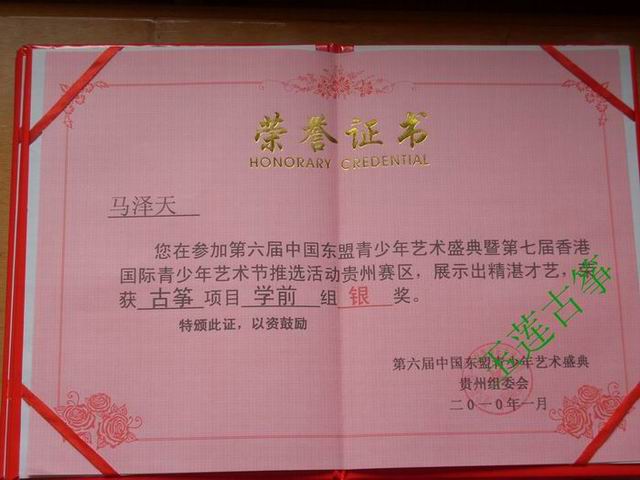 荣誉证书
HONORARY CREDENTIAL
马泽天
您在参加第六届中国东盟青少年艺术盛典暨第七届香港
国际青少年艺术节推选活动贵州赛区，展示出精湛才艺，荣
获 古筝 项目 学前 组 银 奖。
特颁此证，以资鼓励
玉莲古筝
第六届中国东盟青少年艺术盛典
贵州组委会
二○一○年一月